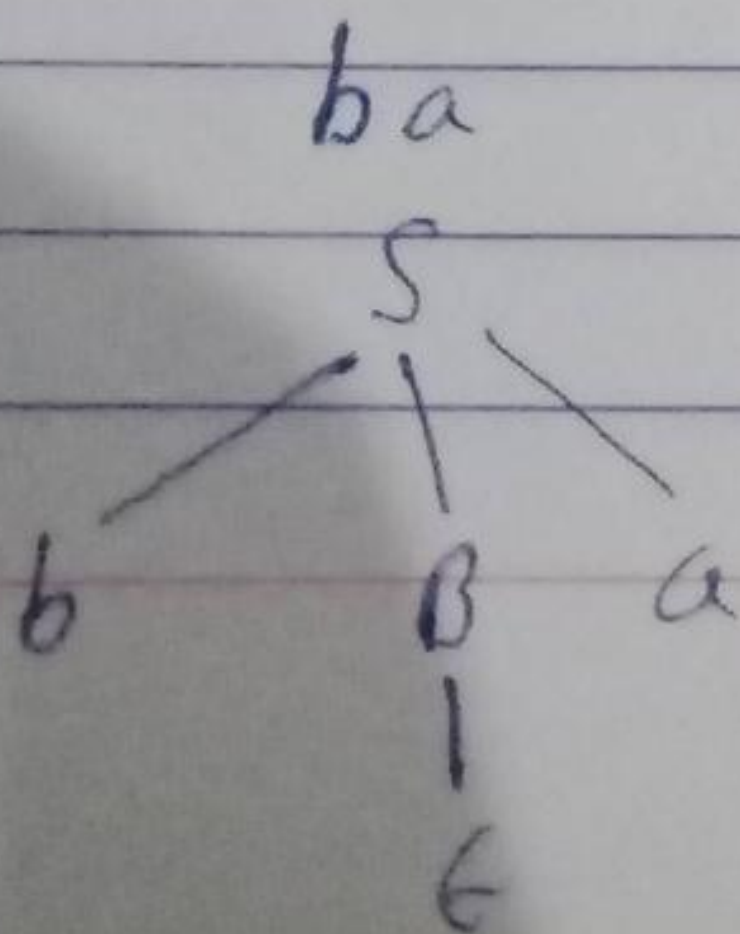 ba
S
b B a
ϵ